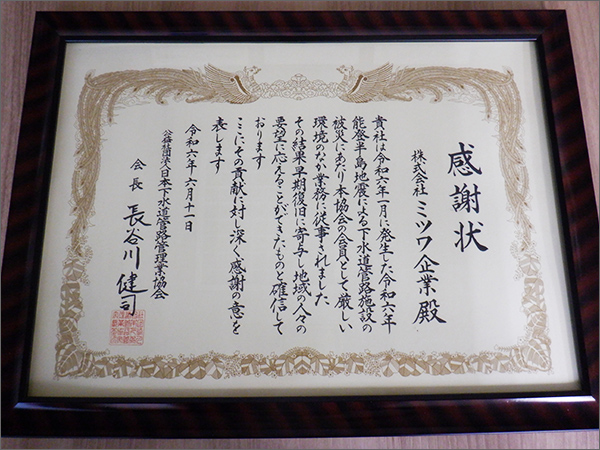 感謝状
株式会社 ミツワ企業 殿
貴社は令和六年一月に発生した令和六年
能登半島地震による下水道管路施設の
被災にあたり本協会の会員として厳しい
環境のなか業務に従事されました
その結果早期復旧に寄与し地域の人々の
要望に応えることができたものと確信して
おります
ここにその貢献に対し深く感謝の意を
表します
令和六年六月十一日
公益社団法人日本下水道管路管理業協会
会長 長谷川健司